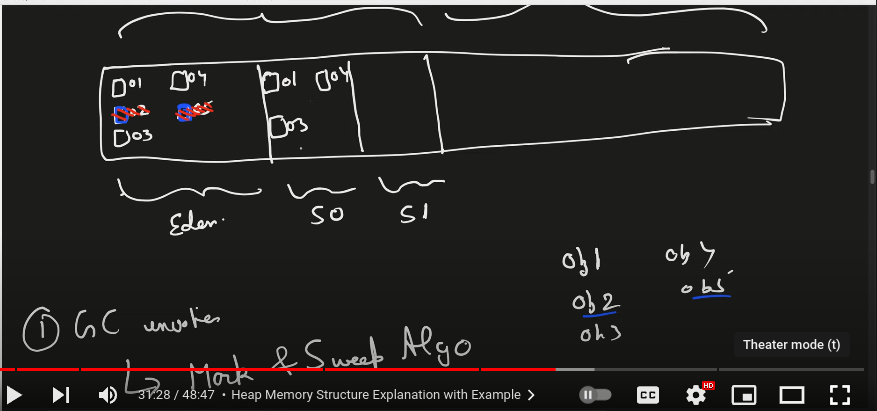 o1 o4 o1 o4
o2 o5
o3 o3
Eden. S0 S1
ob1 ob4
ob2 ob5
ob3
① GC invokes
↳ Mark & Sweep Algo
Theater mode (t)
31:28 / 48:47 • Heap Memory Structure Explanation with Example >
CC HD